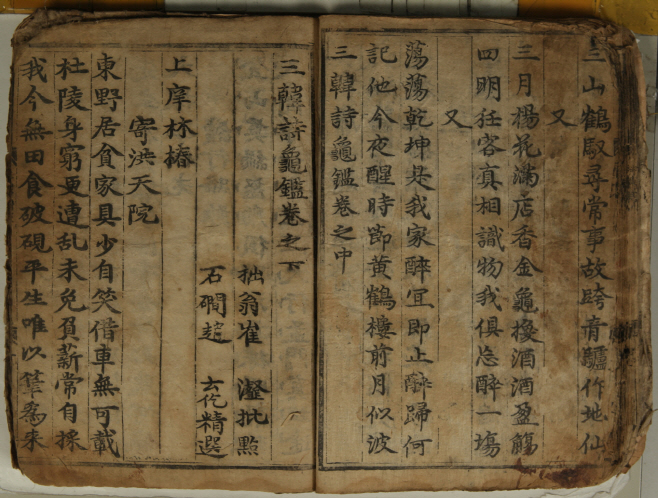 三山鶴馭尋常事故跨青驢作地仙
又
三月楊花滿店香金龜換酒酒盈觴
四明狂客真相識物我俱忘醉一塲
又
蕩蕩乾坤是我家醉宜即止辭歸何
記他今夜醒時節黃鶴樓前月似波
三韓詩龜鑑卷之中
三韓詩龜鑑卷之下
拙翁崔 瀣批點
石磵趙 云仡精選
上庠林椿
寄洪天院
東野居貧家具少自笑借車無可載
杜陵身窮更遭乱未免負薪常自採
我今無田食破硯平生唯以筆為耒